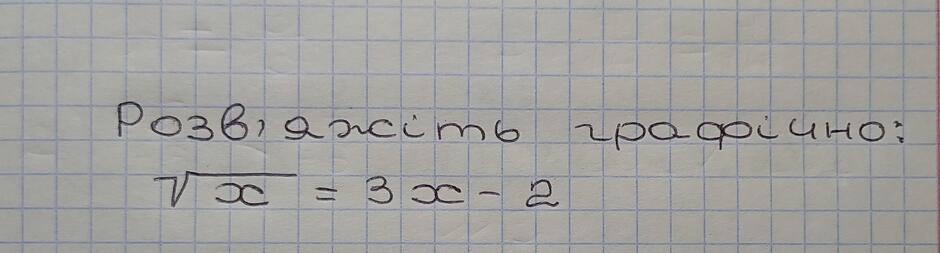 Розв'яжіть графічно:
√x = 3x - 2